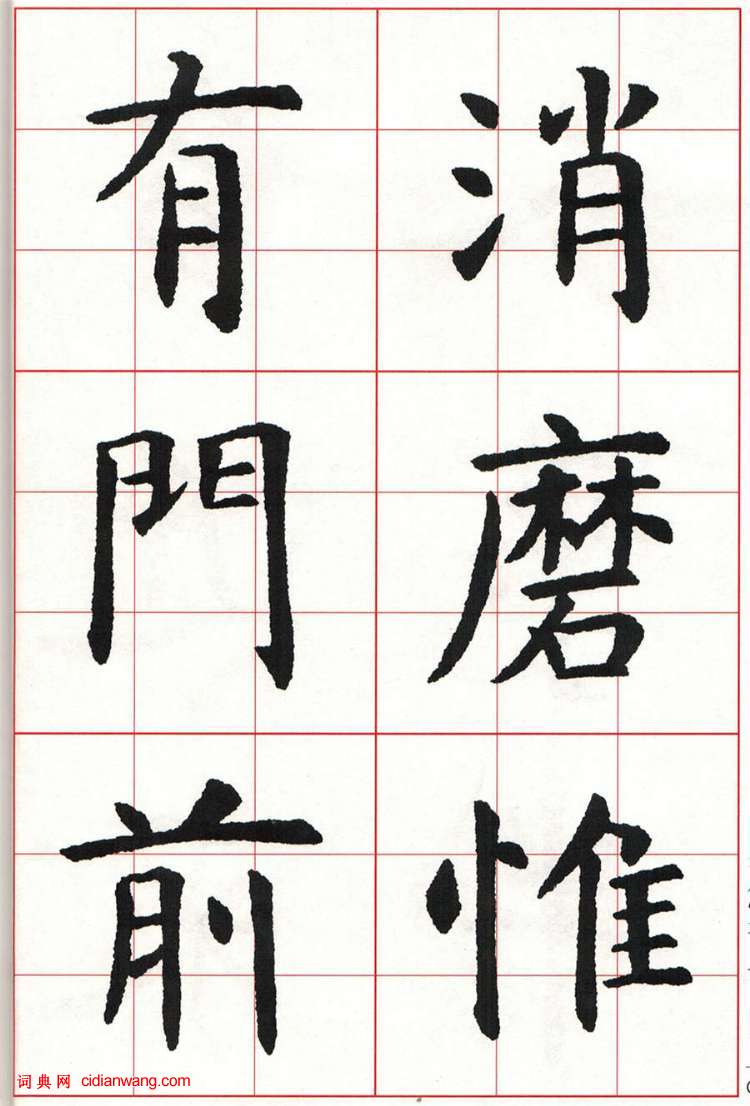 消磨惟
有門前
词典网 cidianwang.com